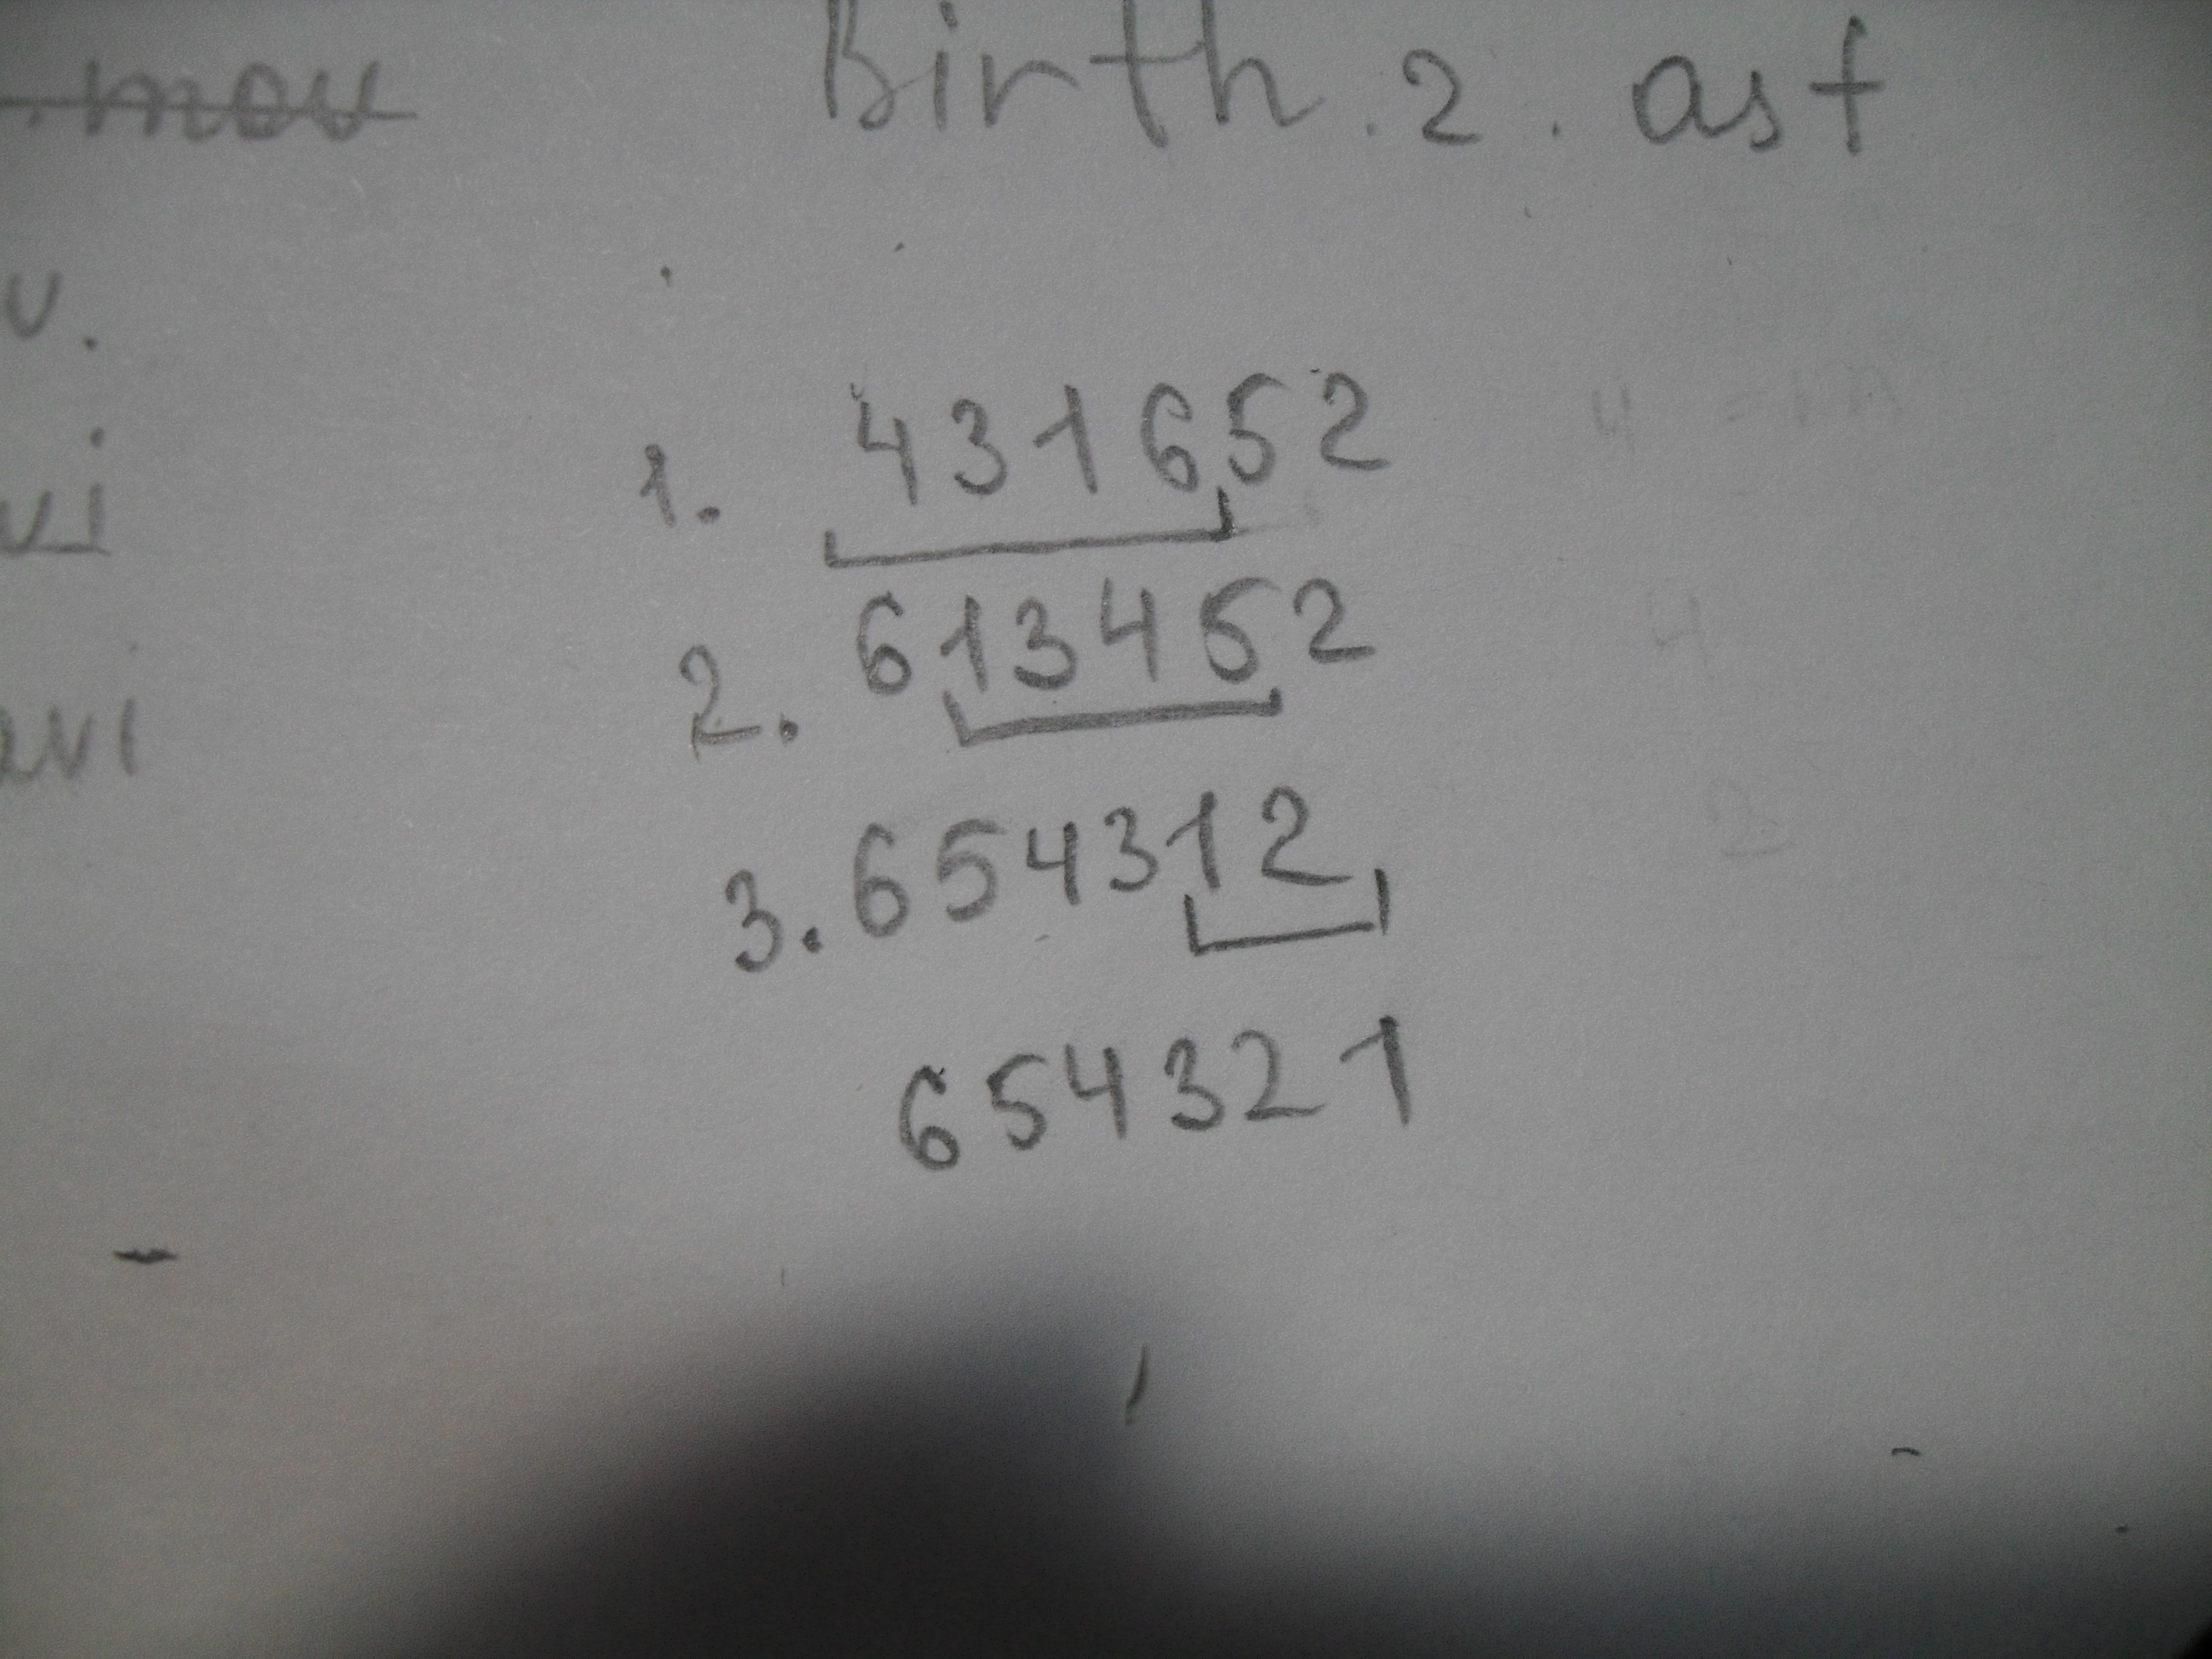 mov
Birth.2.asf
v.
vi
avi
1. 431652
2. 613452
3. 654312
654321